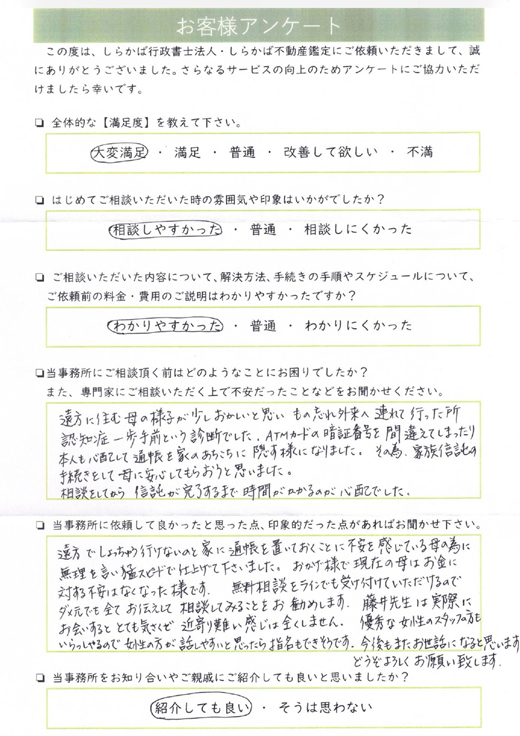 お客様アンケート
この度は、しらかば行政書士法人・しらかば不動産鑑定にご依頼いただきまして、誠
にありがとうございました。さらなるサービスの向上のためアンケートにご協力いただ
けましたら幸いです。
❏ 全体的な【満足度】を教えて下さい。
大変満足 ・ 満足 ・ 普通 ・ 改善して欲しい ・ 不満
❏ はじめてご相談いただいた時の雰囲気や印象はいかがでしたか?
相談しやすかった ・ 普通 ・ 相談しにくかった
❏ ご相談いただいた内容について、解決方法、手続きの手順やスケジュールについて、
ご依頼前の料金・費用のご説明はわかりやすかったですか?
わかりやすかった ・ 普通 ・ わかりにくかった
❏当事務所にご相談頂く前はどのようなことにお困りでしたか?
また、専門家にご相談いただく上で不安だったことなどをお聞かせください。
遠方に住む母の様子が少しおかしいと思い もの忘れ外来へ連れて行った所
認知症一歩手前という診断でした。ATMカードの暗証番号を間違えてしまったり
本人も心配して通帳を家のあちこちに隠す様になりました。その為、家族信託の
手続きをして母に安心してもらおうと思いました。
相談をしてから信託が完了するまで時間がかかるのが心配でした。
❏ 当事務所に依頼して良かったと思った点、印象的だった点があればお聞かせ下さい。
遠方でしょっちゅう行けないのと家に通帳を置いておくことに不安を感じている母の為に
無理を言い猛スピードで仕上げて下さいました。おかげ様で現在の母はお金に
対する不安はなくなった様です。無料相談をラインでも受け付けていただけるので
ダメ元でも全てお伝えして相談してみることをお勧めします。藤井先生は実際に
お会いするととても気さくで近寄り難い感じは全くしません。優秀な女性のスタッフの方も
いらっしゃるので女性の方が話しやすいと思ったら指名もできそうです。今後もまたお世話になると思います
どうぞよろしくお願い致します。
❏ 当事務所をお知り合いやご親戚にご紹介しても良いと思いましたか?
紹介しても良い ・ そうは思わない